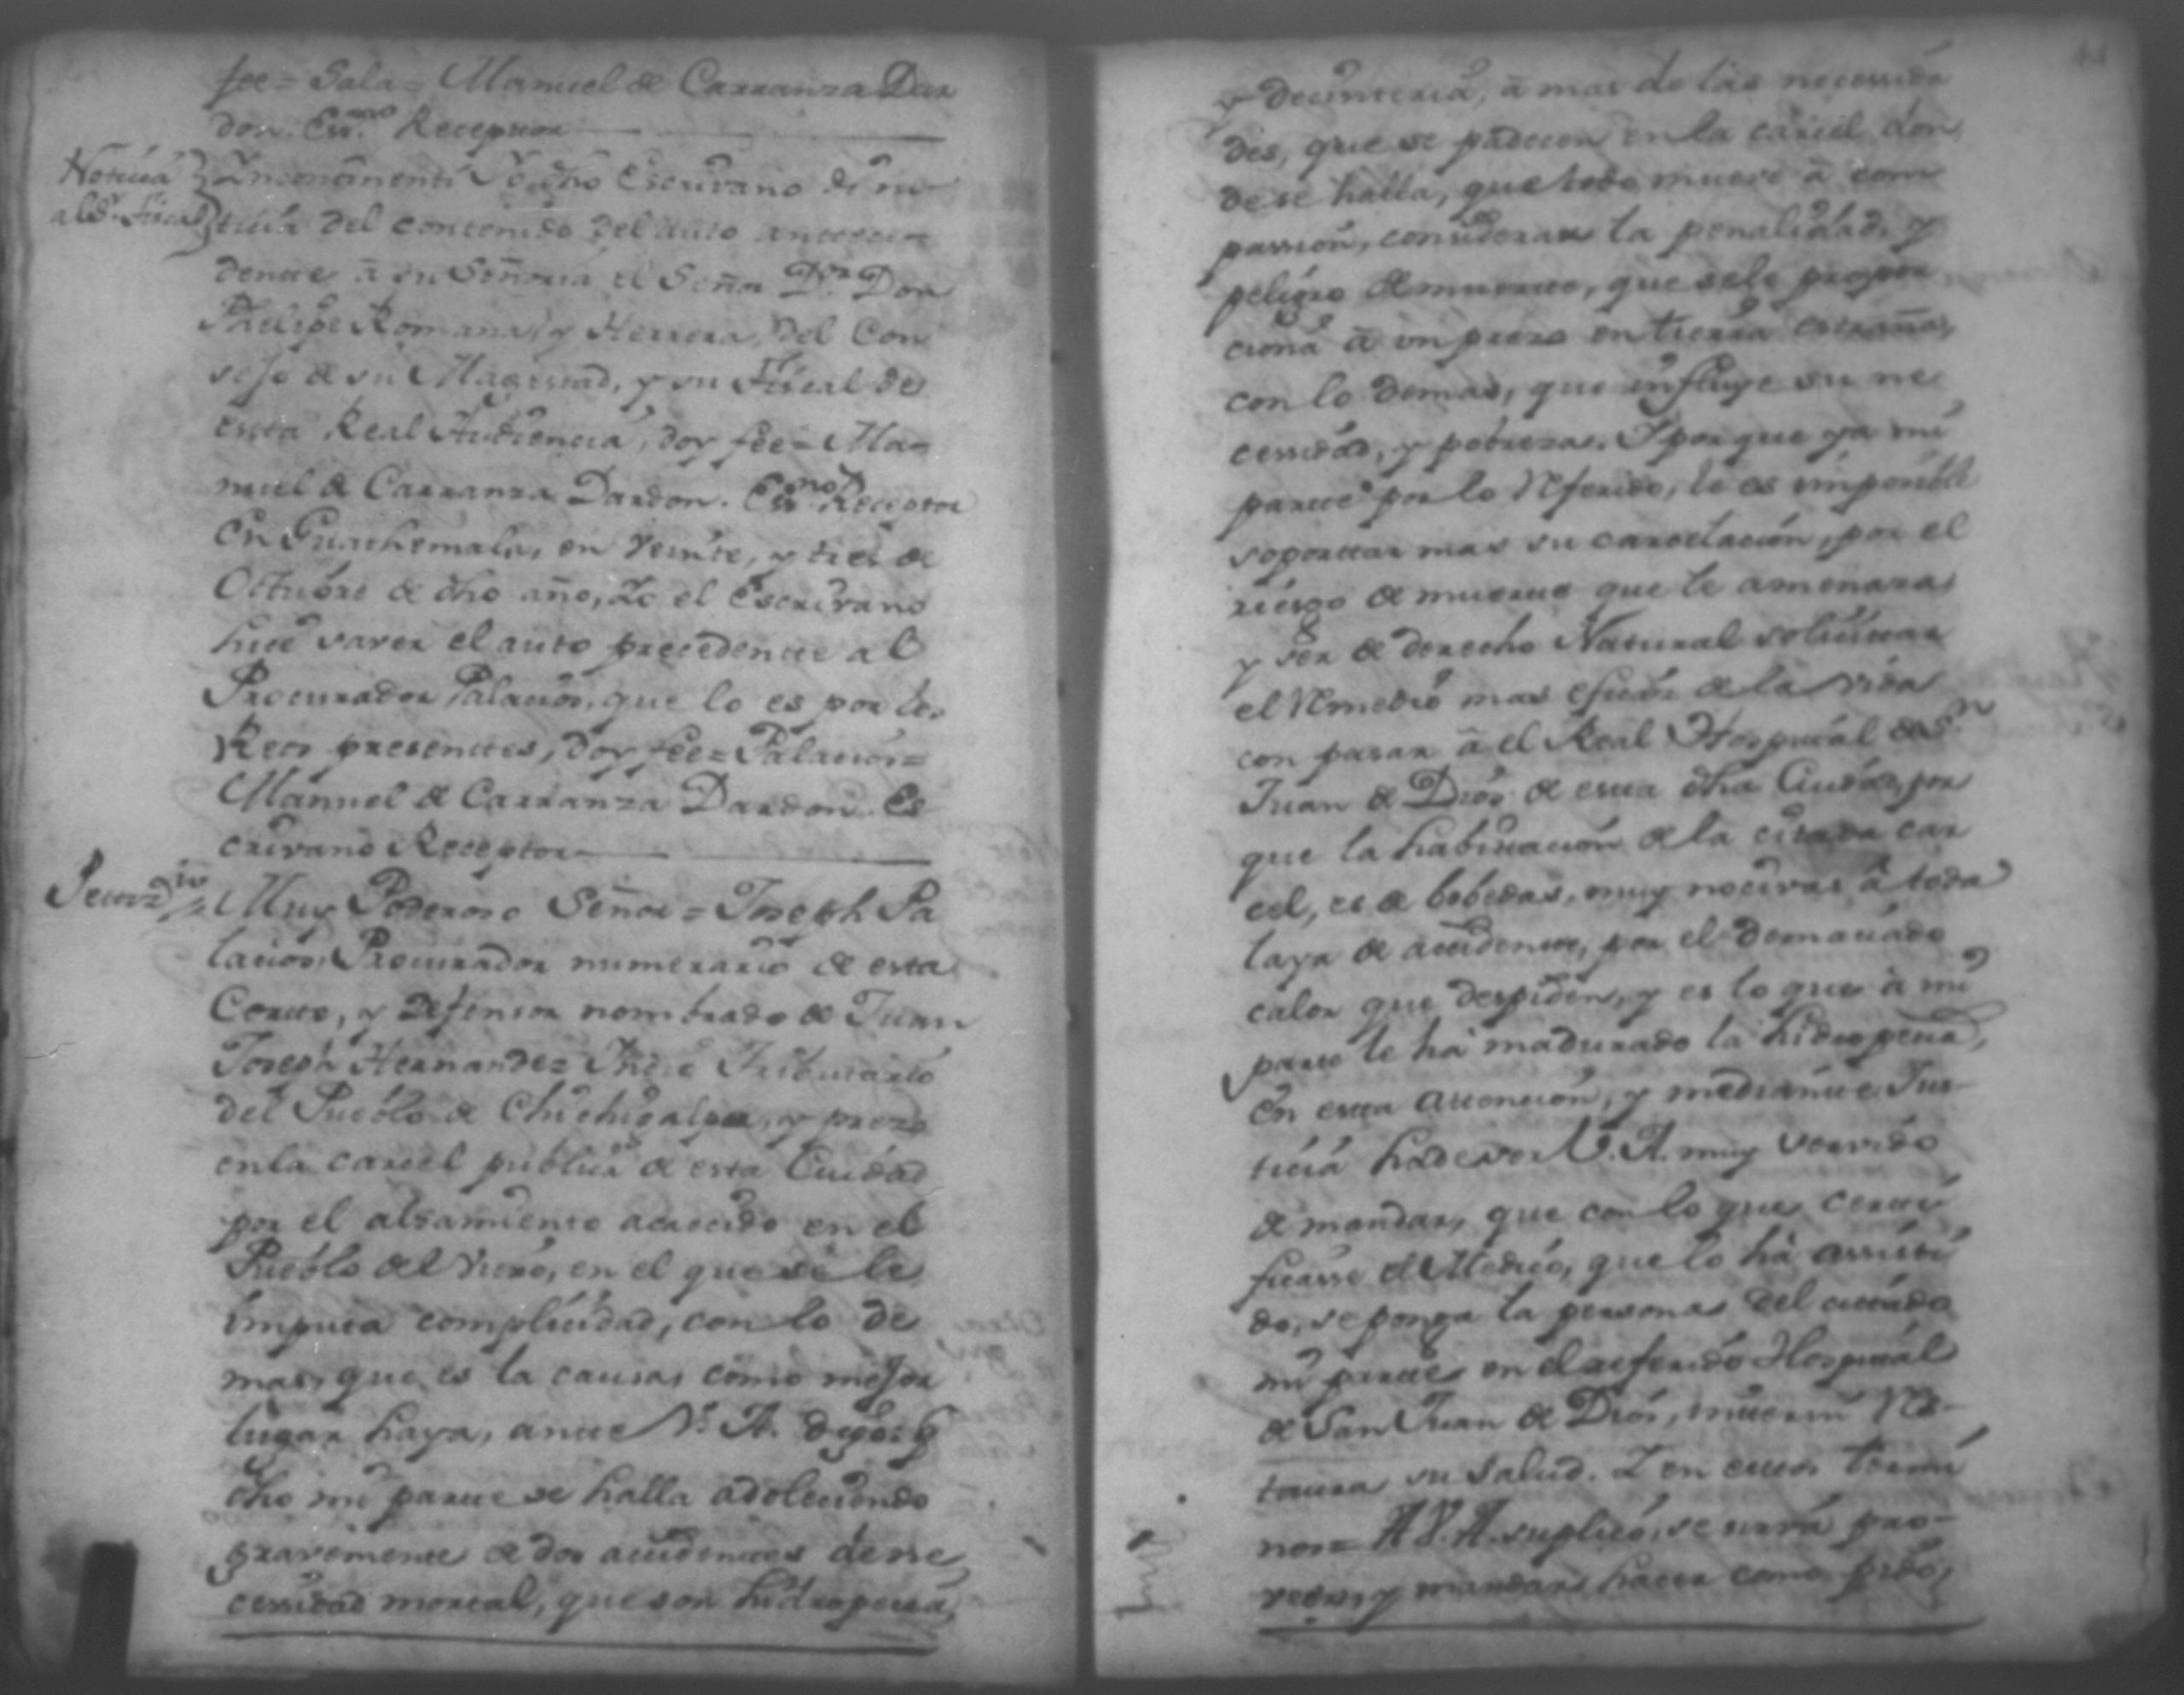 fee = Sala = Manuel de Carranza Dar
don. Ess.no Receptor
Noticia al Sr. Fiscal
Yncontinenti Yo dho Escrivano di no
ticia del contenido del auto antece
dente â su Señoria el Señor D.or Don
Phelipe Romana, y Herrera, del Con
sejo de su Magestad, y su Fiscal de
esta Real Audiencia, doy fee = Ma=
nuel de Carranza Dardon. Ess.no Receptor
En Guathemala, en veinte, y tres de
Octubre de dho año, Yo el Escrivano
hice saver el auto precedente al
Procurador Palacios, que lo es por los
Reos presentes, doy fee = Palacios =
Manuel de Carranza Dardon. Es
crivano Receptor
Muy Poderoso Señor = Joseph Pa
lacios Procurador numerario de esta
Corte, y defensor nombrado de Juan
Joseph Hernandez Yndio Tributario
del Pueblo de Chichigalpa, y preso
en la carcel publica de esta Ciudad
por el alsamiento acaecido en el
Pueblo del Viejo, en el que se le
imputa complicidad, con lo de
mas, que es la causa, como mejor
lugar haya, ante V. A. digo: q
dho mi parte se halla adoleciendo
gravemente de dos accidentes de ne
cessidad mortal, que son hidropecia,
y decinteria, â mas de las necessida
des, que se padecen en la carcel don
de se halla, que todo mueve â com
passion, considerar la penalidad, y
peligro de muerte, que se le propor
ciona â un preso en tierra estraña,
con lo demas, que influye su ne
cessidad, y pobreza. Y porque ya mi
parte por lo referido, le es imposible
soportar mas su carcelacion, por el
riesgo de muerte que le amenaza,
y ser de derecho Natural solicitar
el remedio mas eficaz de la vida
con pasar â el Real Hospital de S.n
Juan de Dios de esta dha Ciudad, por
que la habitacion de la citada car
cel, es de bobedas, muy nocivas â toda
laya de accidente, por el demaciado
calor que despiden, y es lo que â mi
parte le ha madurado la hidropecia,
En esta attencion, y mediante Jus
ticia ha de ser V. A. muy servido
de mandar, que con lo que certi
ficasse el Medico, que lo ha assisti
do, se ponga la persona del citado
mi parte en el referido Hospital
de San Juan de Dios, interin res
taura su salud. Y en estos termi
nos = A V. A. suplico, se sirva pro
veer, y mandar hacer como pido,